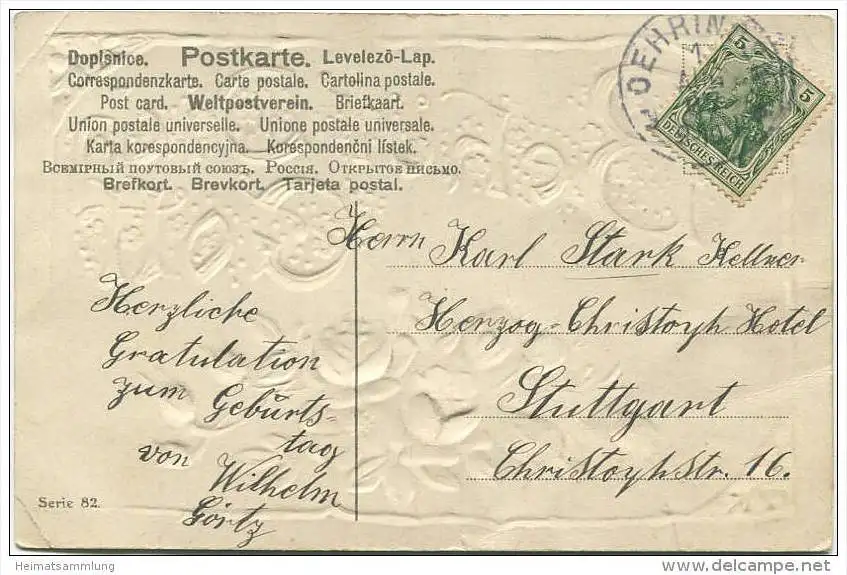 Dopisnice. Postkarte. Levelező-Lap.
Correspondenzkarte. Carte postale. Cartolina postale.
Post card. Weltpostverein. Briefkaart.
Union postale universelle. Unione postale universale.
Karta korespondencyjna. Korespondenční lístek.
Всемірный почтовый союзъ. Россія. Открытое письмо.
Brefkort. Brevkort. Tarjeta postal.
OEHRIN
5
5
DEUTSCHES REICH
Herrn Karl Stark Kellner
Herzog-Christoph Hotel
Stuttgart
Christophstr. 16.
Herzliche
Gratulation
zum Geburts-
tag
von Wilhelm
Görtz
Serie 82.
Heimatsammlung
www.delcampe.net